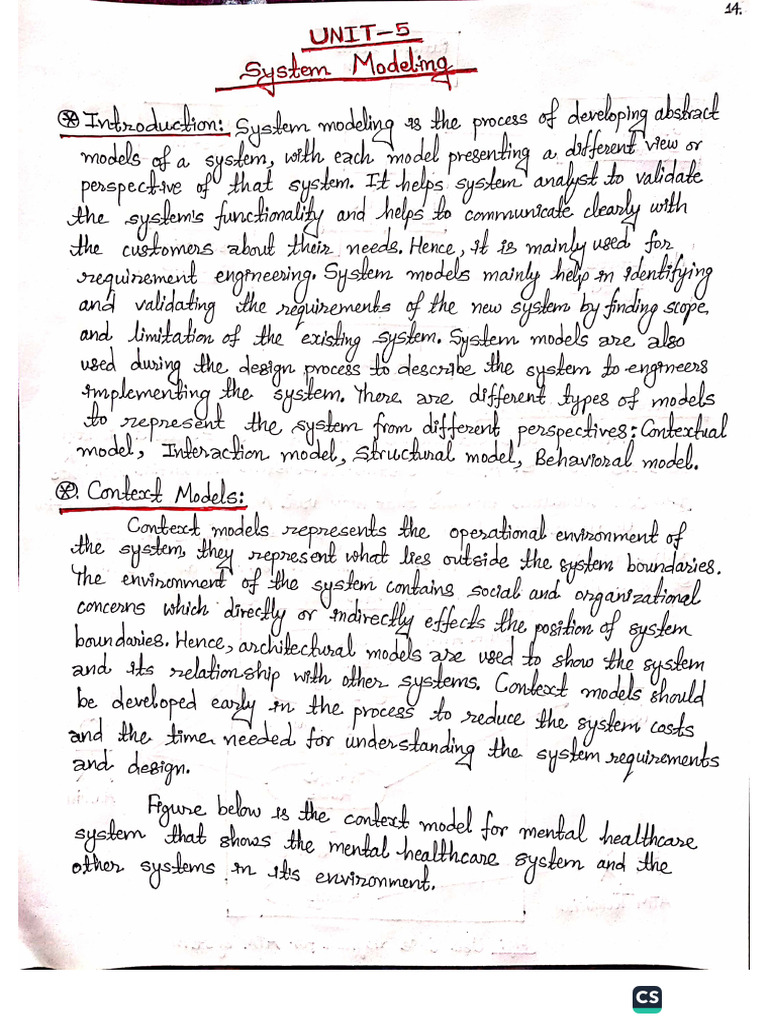 14.
UNIT-5
System Modeling
⊛ Introduction: System modeling is the process of developing abstract
models of a system, with each model presenting a different view or
perspective of that system. It helps system analyst to validate
the system's functionality and helps to communicate clearly with
the customers about their needs. Hence, it is mainly used for
requirement engineering. System models mainly help in identifying
and validating the requirements of the new system by finding scope
and limitation of the existing system. System models are also
used during the design process to describe the system to engineers
implementing the system. There are different types of models
to represent the system from different perspectives: Contextual
model, Interaction model, Structural model, Behavioral model.
⊛. Context Models:
Context models represents the operational environment of
the system, they represent what lies outside the system boundaries.
The environment of the system contains social and organizational
concerns which directly or indirectly effects the position of system
boundaries. Hence, architectural models are used to show the system
and its relationship with other systems. Context models should
be developed early in the process to reduce the system costs
and the time needed for understanding the system requirements
and design.
Figure below is the context model for mental healthcare
system that shows the mental healthcare system and the
other systems in it's environment.
CS